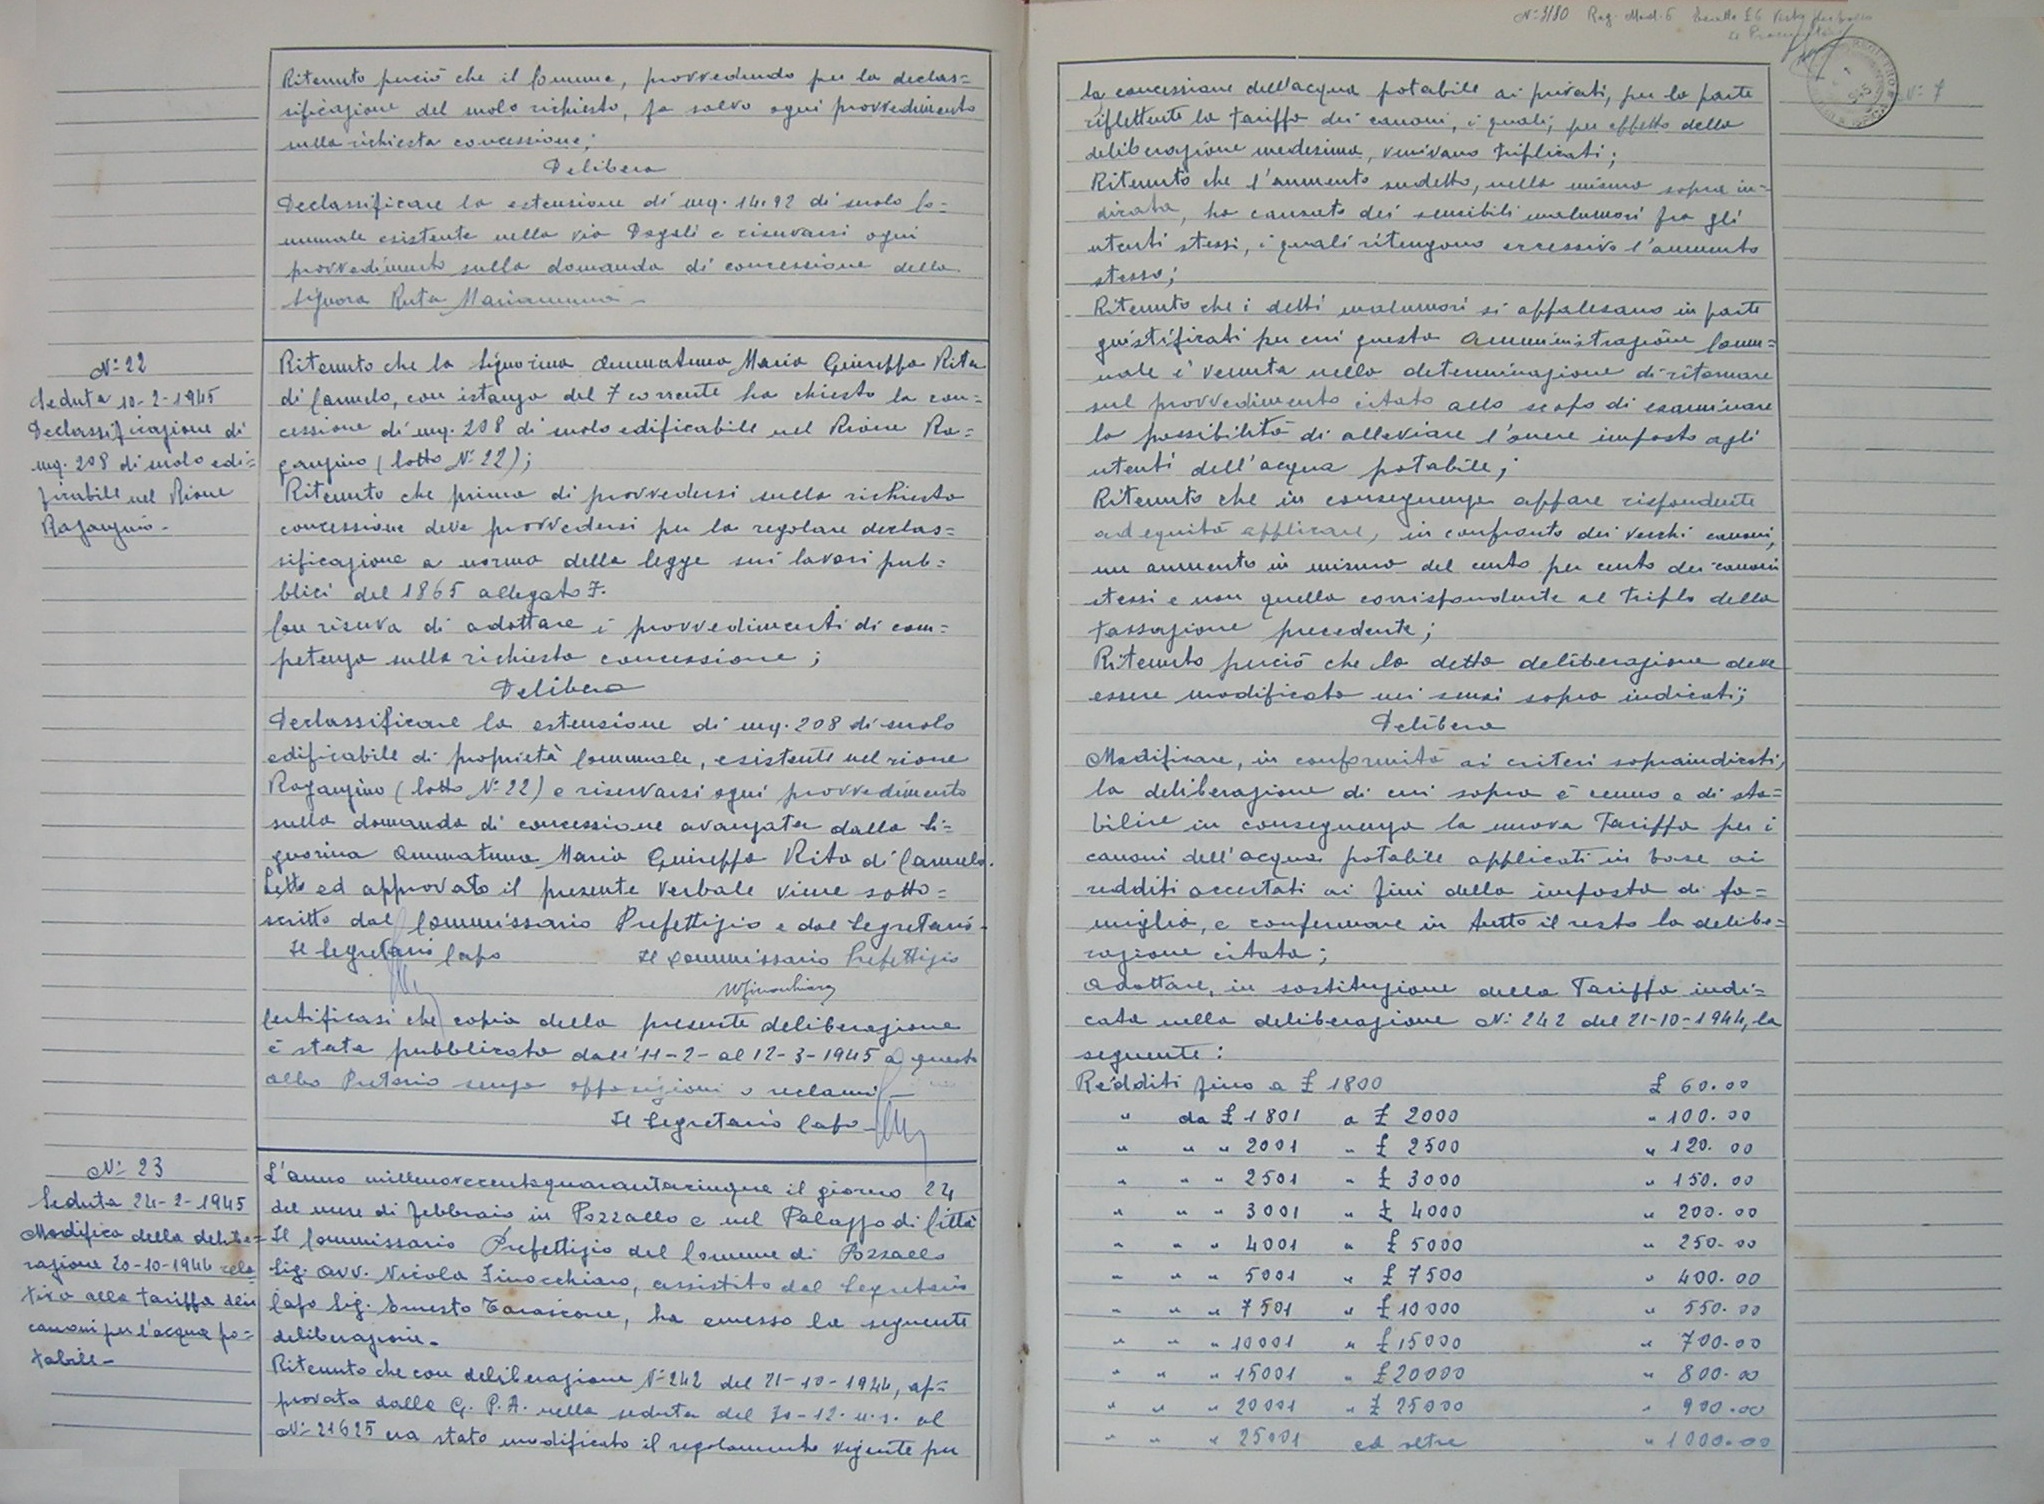 Ritenuto perciò che il Comune, provvedendo per la declas=
sificazione del suolo richiesto, fa salvo ogni provvedimento
sulla richiesta concessione;
Delibera
Declassificare la estensione di mq. 14.92 di suolo Co=
munale esistente nella via Dogali e riservarsi ogni
provvedimento sulla domanda di concessione della
Signora Ruta Mariannina -
N: 22
Seduta 10-2-1945
Declassificazione di
mq. 208 di suolo edi=
ficabile nel Rione
Raganzino -
Ritenuto che la Signorina Ammatuna Maria Giuseppa Rita
di Carmelo, con istanza del 7 corrente ha chiesto la con=
cessione di mq. 208 di suolo edificabile nel Rione Ra=
ganzino (lotto N: 22);
Ritenuto che prima di provvedersi sulla richiesta
concessione deve provvedersi per la regolare declas=
sificazione a norma della legge sui lavori pub=
blici del 1865 allegato F.
Con riserva di adottare i provvedimenti di com=
petenza sulla richiesta concessione;
Delibera
Declassificare la estensione di mq. 208 di suolo
edificabile di proprietà Comunale, esistente nel rione
Raganzino (lotto N: 22) e riservarsi ogni provvedimento
sulla domanda di concessione avanzata dalla Si=
gnorina Ammatuna Maria Giuseppa Rita di Carmelo.
Letto ed approvato il presente verbale viene sotto=
scritto dal Commissario Prefettizio e dal Segretario.
Il Segretario Capo Il Commissario Prefettizio
NFinocchiaro
Certificasi che copia della presente deliberazione
è stata pubblicata dall'11-2- al 12-3-1945 a questo
albo Pretorio senza opposizioni o reclami -
Il Segretario Capo -
N: 23
Seduta 24-2-1945
Modifica della delibe=
razione 20-10-1944 rela=
tiva alla tariffa dei
canoni per l'acqua po=
tabile -
L'anno millenovecentoquarantacinque il giorno 24
del mese di febbraio in Pozzallo e nel Palazzo di Città
Il Commissario Prefettizio del Comune di Pozzallo
Sig. Avv. Nicola Finocchiaro, assistito dal Segretario
Capo Sig. Ernesto Tarascone, ha emesso la seguente
deliberazione -
Ritenuto che con deliberazione N: 242 del 21-10-1944, ap=
provata dalla G. P. A. nella seduta del 30-12. u.s. al
N: 21625 era stato modificato il regolamento vigente per
N: 3180 Reg. Mod. 6
N: 7
la concessione dell'acqua potabile ai privati, per la parte
riflettente la tariffa dei canoni, i quali, per effetto della
deliberazione medesima, venivano triplicati;
Ritenuto che l'aumento sudetto, nella misura sopra in=
dicata, ha causato dei sensibili malumori fra gli
utenti stessi, i quali ritengono eccessivo l'aumento
stesso;
Ritenuto che i detti malumori si appalesano in parte
giustificati per cui questa Amministrazione Comu=
nale è venuta nella determinazione di ritornare
sul provvedimento citato allo scopo di esaminare
la possibilità di alleviare l'onere imposto agli
utenti dell'acqua potabile;
Ritenuto che in conseguenza appare rispondente
ad equità applicare, in confronto dei vecchi canoni,
un aumento in misura del cento per cento dei canoni
stessi e non quella corrispondente al triplo della
tassazione precedente;
Ritenuto perciò che la detta deliberazione deve
essere modificata nei sensi sopra indicati;
Delibera
Modificare, in conformità ai criteri sopraindicati,
la deliberazione di cui sopra è cenno e di sta=
bilire in conseguenza la nuova Tariffa per i
canoni dell'acqua potabile applicati in base ai
redditi accertati ai fini della imposta di fa=
miglia, e confermare in tutto il resto la delibe=
razione citata;
Adottare, in sostituzione della Tariffa indi=
cata nella deliberazione N: 242 del 21-10-1944, la
seguente:
Redditi fino a £ 1800 £ 60.00
" da £ 1801 a £ 2000 " 100.00
" " " 2001 " £ 2500 " 120.00
" " " 2501 " £ 3000 " 150.00
" " " 3001 " £ 4000 " 200.00
" " " 4001 " £ 5000 " 250.00
" " " 5001 " £ 7500 " 400.00
" " " 7501 " £ 10000 " 550.00
" " " 10001 " £ 15000 " 700.00
" " " 15001 " £ 20000 " 800.00
" " " 20001 " £ 25000 " 900.00
" " " 25001 ed oltre " 1000.00